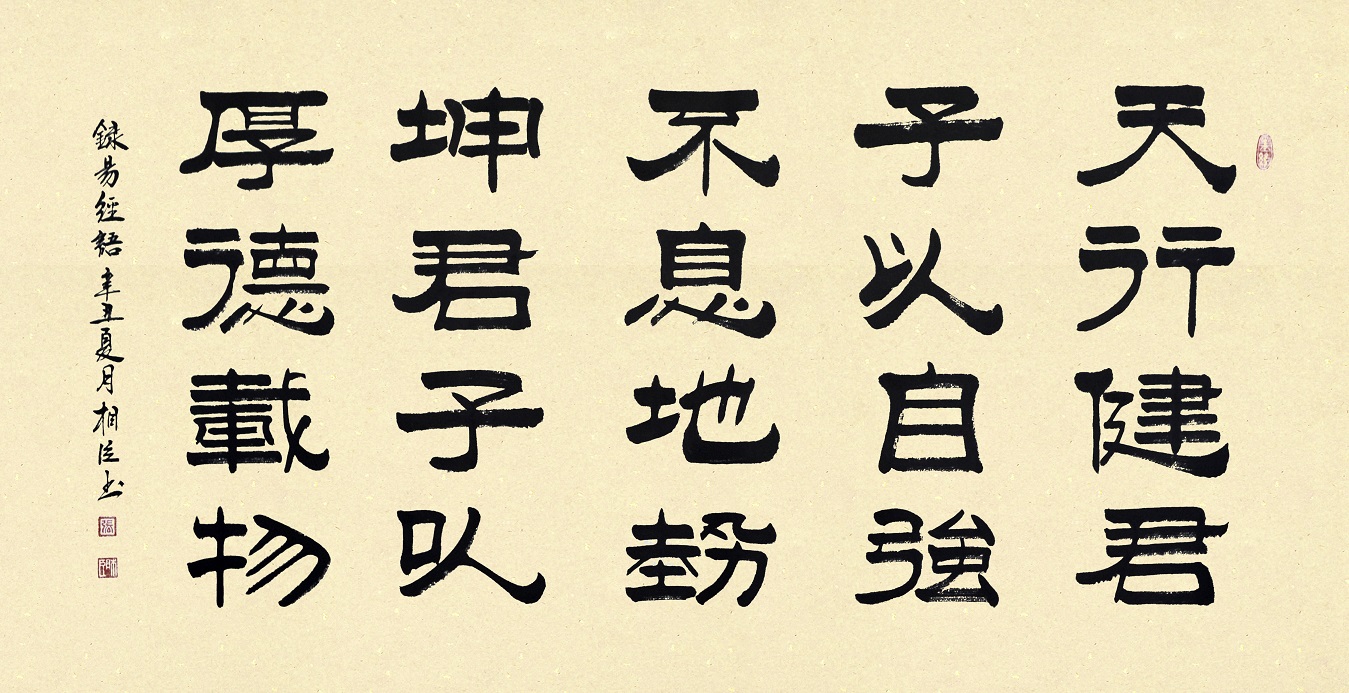 天行健君
子以自強
不息地勢
坤君子以
厚德載物
錄易經語辛丑夏月相臣书